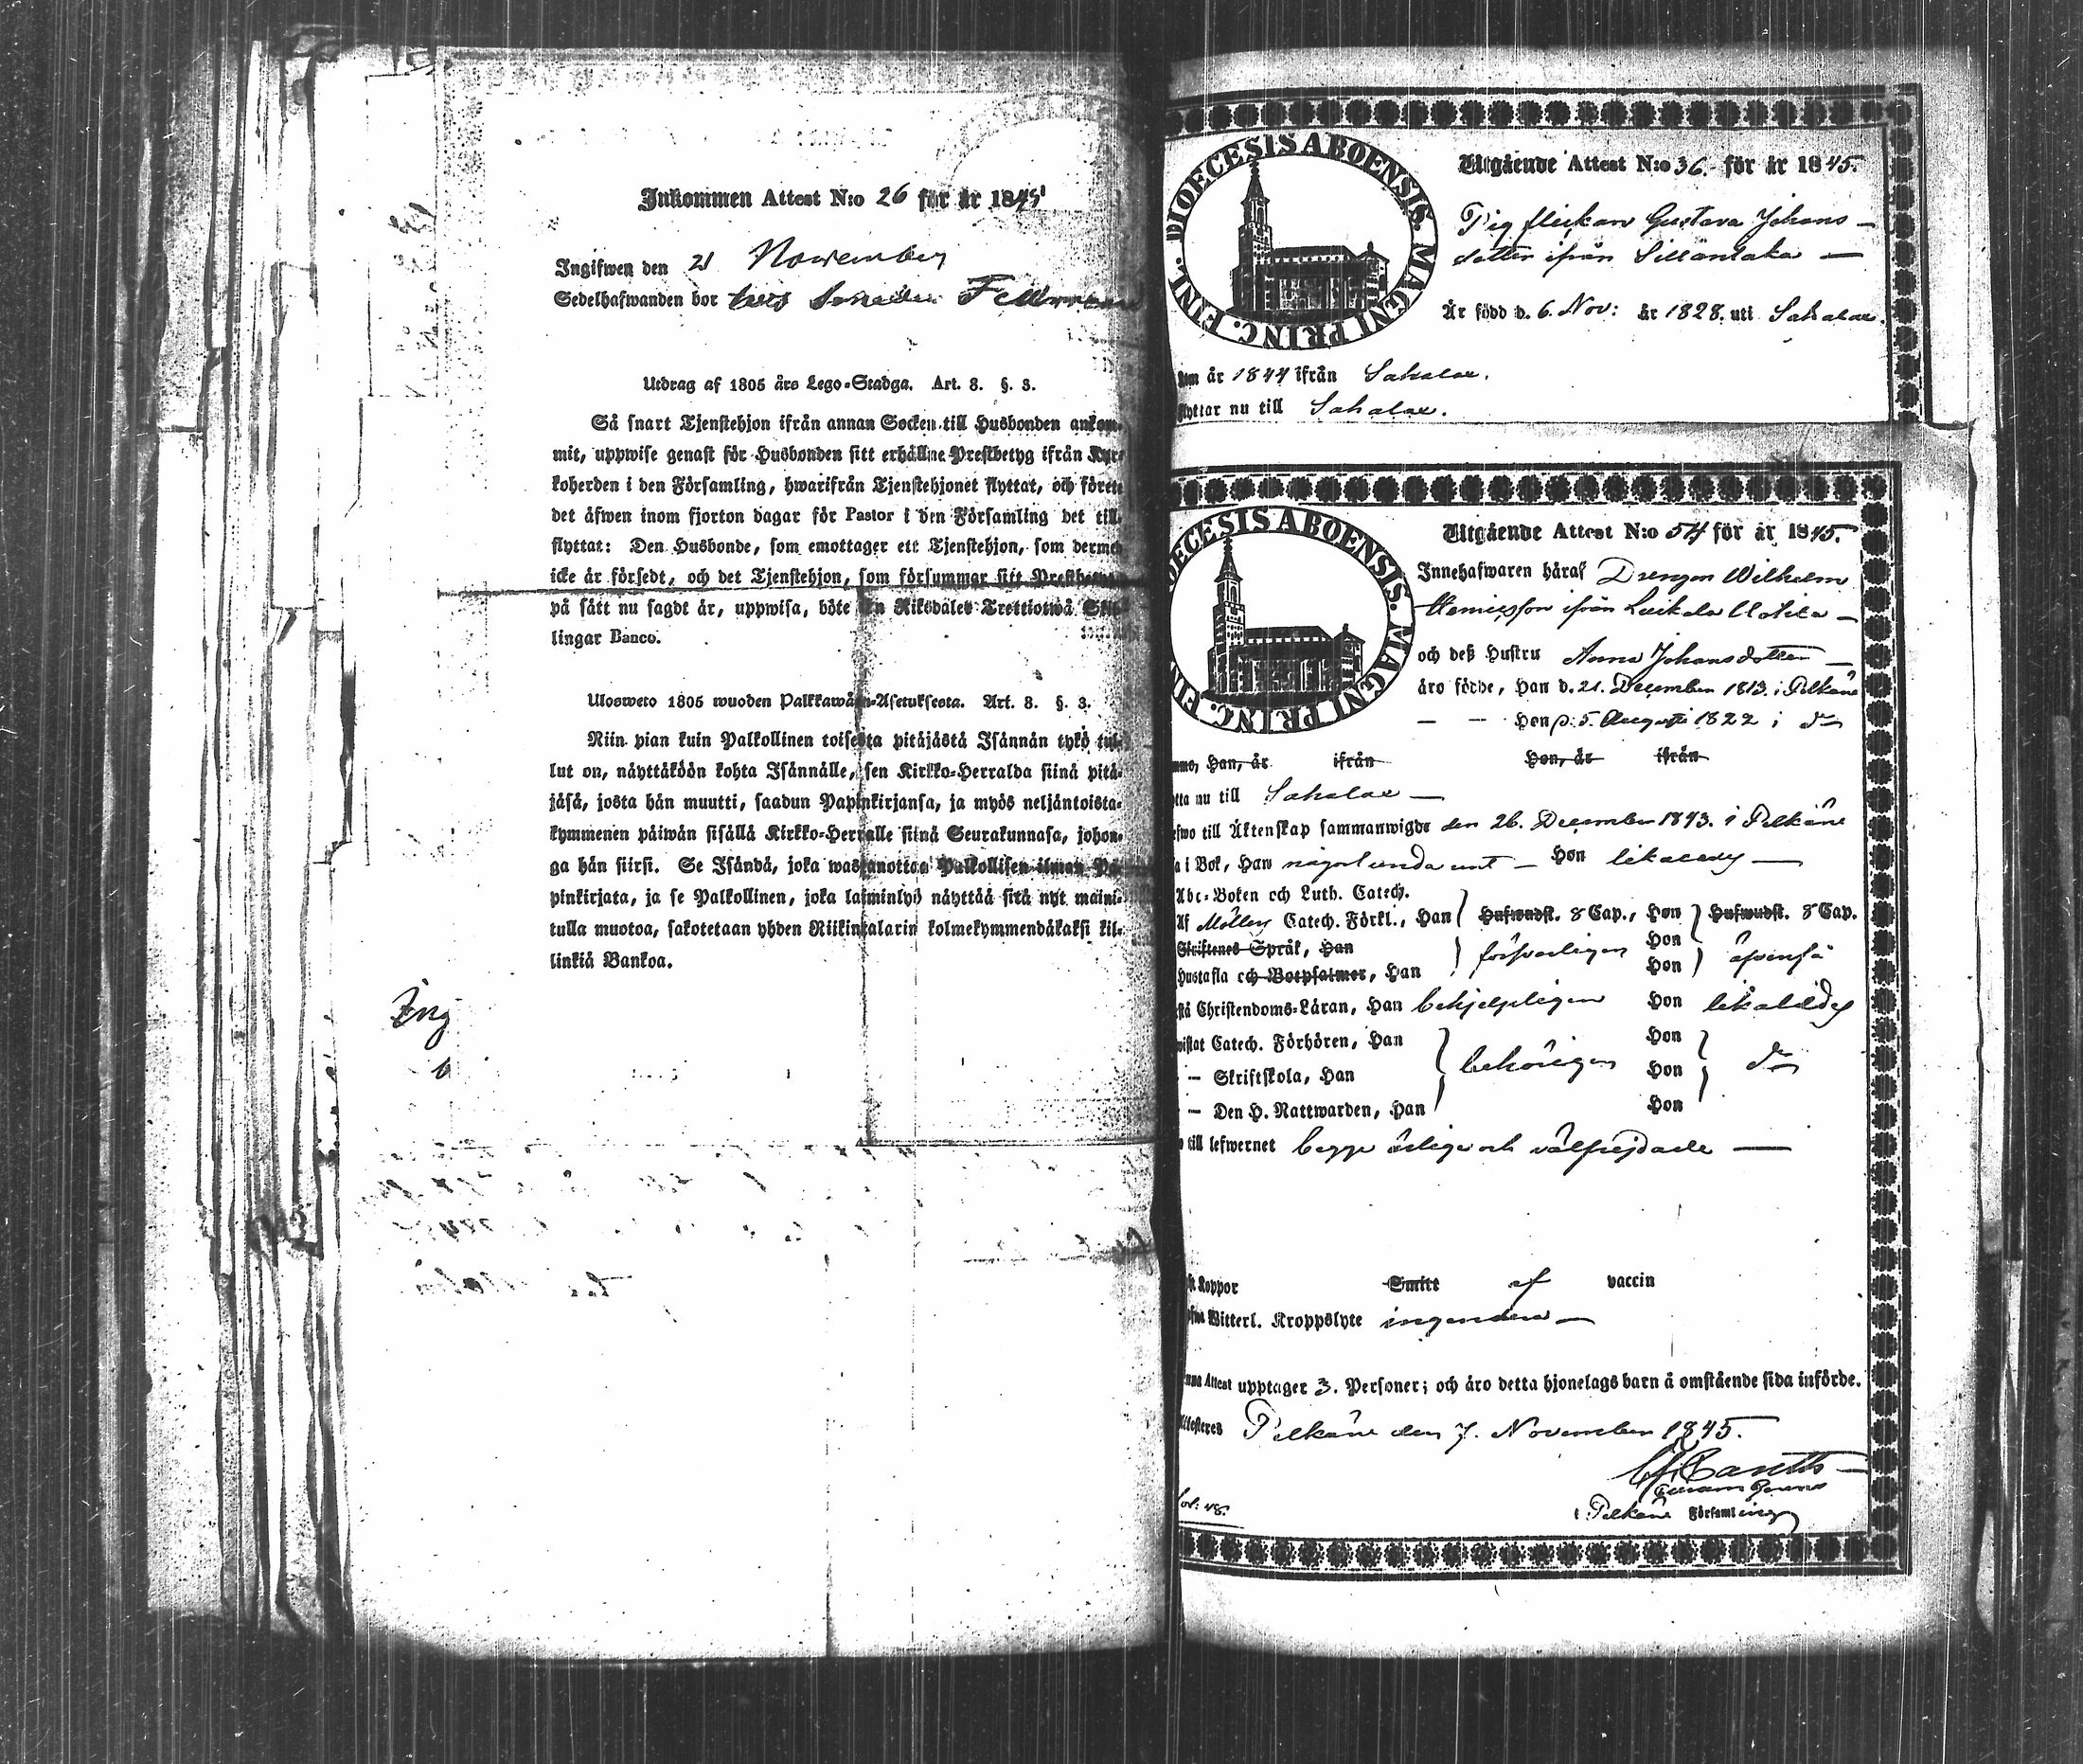 Inkommen Attest N:o 26 för år 1845
Ingifwen den 21 November
Sedelhafwanden bor hos Smeden Fellman
Utdrag af 1805 års Lego-Stadga. Art. 8. §. 3.
Så snart Tjenstehjon ifrån annan Socken till Husbonden ankom-
mit, uppwise genast för Husbonden sitt erhållne Prestbetyg ifrån Kyr-
koherden i den Församling, hwarifrån Tjenstehjonet flyttat, och förete
det äfwen inom fjorton dagar för Pastor i den Församling det till-
flyttat: Den Husbonde, som emottager ett Tjenstehjon, som dermed
icke är försedt, och det Tjenstehjon, som försummar sitt Prestbetyg
på sätt nu sagdt är, uppwisa, böte En Riksdaler Trettiotwå Skil-
lingar Banco.
Ulosweto 1805 wuoden Palkkawäen-Asetuksesta. Art. 8. §. 3.
Niin pian kuin Palkollinen toisesta pitäjästä Isännän tykö tul-
lut on, näyttäköön kohta Isännälle, sen Kirkko-Herralda siinä pitä-
jäsä, josta hän muutti, saadun Papinkirjansa, ja myös neljäntoista-
kymmenen päiwän sisällä Kirkko-Herralle siinä Seurakunnasa, johon-
ga hän siirsi. Se Isändä, joka wastanottaa Palkollisen ilman Pa-
pinkirjata, ja se Palkollinen, joka laiminlyö näyttää sitä nyt maini-
tulla muotoa, sakotetaan yhden Riikintalarin kolmekymmendäkaksi kil-
linkiä Bankoa.
DIOECESIS ABOENSIS. MAGNI PRINC. FINL.
Utgående Attest N:o 36. för år 1845.
Pigflickan Gustava Johans-
dotter ifrån Sillantaka —
Är född d. 6. Nov: år 1828. uti Sahalax.
kom år 1844 ifrån Sahalax.
flyttar nu till Sahalax.
DIOECESIS ABOENSIS. MAGNI PRINC. FIN
Utgående Attest N:o 54 för år 1845.
Innehafwaren häraf Drengen Wilhelm
Henricsson ifrån Luikala Uotila —
och deß Hustru Anna Johansdotter —
äro födde, Han d. 21. December 1813. i Pelkäne
— — Hon d. 5. Augusti 1822 i do
Han, år ifrån Hon, år ifrån
nu till Sahalax —
till Äktenskap sammanwigde den 26. December 1843. i Pelkäne
i Bok, Han något unda — Hon likaledes —
Abc-Boken och Luth. Catech.
Af Möllers Catech. Förkl., Han Hufwudst. 8 Cap., Hon Hufwudst. 8 Cap.
Skriftenes Språk, Han försvarligen Hon äfvenså
Hustafla och Botpsalmer, Han Hon
Christendoms-Läran, Han behjelpligen Hon likaledes
Catech. Förhören, Han Hon
— Skriftskola, Han behörigen Hon do
— Den H. Nattwarden, Han Hon
till lefwernet begge ärlige och välfrejdade —
Koppor Smitt af vaccin
Witterl. Kroppslyte ingendera —
Attest upptager 3. Personer; och äro detta hjonelags barn å omstående sida införde.
Pelkäne den 7. November 1845.
i Pelkäne Församling